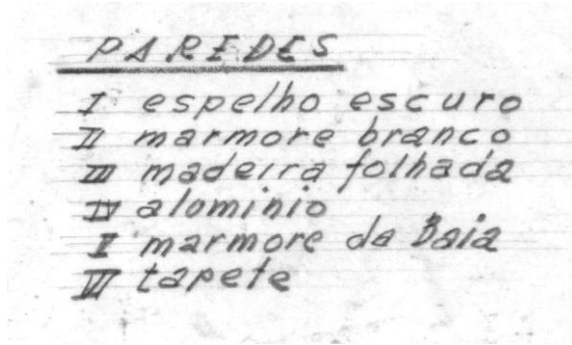 PAREDES
I espelho escuro
II marmore branco
III madeira folhada
IV alominio
V marmore da Baia
VI tapete